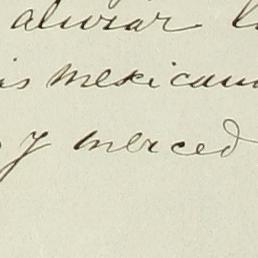 aliviar l
is mexican
y merced